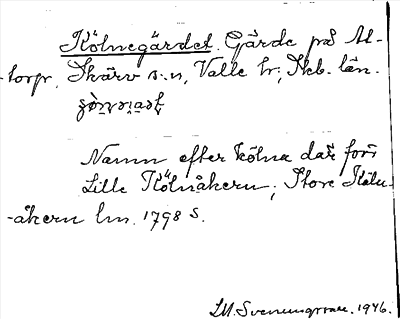 Kölnegärdet. Gärde på Al-
torp, Skärv s:n, Valle hr; Skb. län.
Namn efter kölna där förr
Lille Kölnåkern; Store Köln-
åkern lm. 1798 S.
1946.